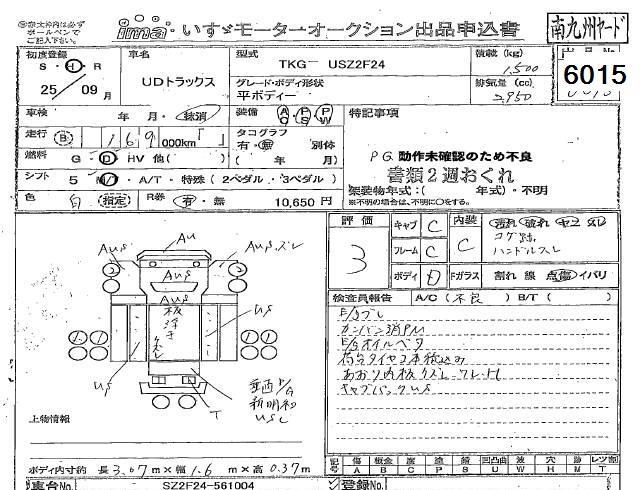 太枠内は必ずボールペンでご記入下さい。
ima いすゞモーターオークション出品申込書
南九州ヤード
初度登録 S・H・R 25/09月
車名 UDトラックス
型式 TKG- USZ2F24
積載(kg) 1,500
グレード・ボディ形状 平ボディー
排気量(cc) 2,950
6015
車検 年 月・抹消
装備 A/Q P/S P/W
特記事項
走行 B 169,000km「 」
タコグラフ 有・無 別体 ( 年 月)
燃料 G・D・HV 他( )
PG動作未確認のため不良
書類2週おくれ
シフト 5 M/T・A/T・特殊(2ペダル・3ペダル)
架装物年式:( 年式)・不明
※不明の場合は、不明に○をする。
色 白 (指定) R券 有・無 10,650円
評価 3
キャブ C
フレーム C
ボディ D
内装 C
汚れ 破れ ヤコ スレ
コゲ跡
ハンドルスレ
Fガラス 割れ 線 点傷 イバリ
検査員報告 A/C(不良) B/T( )
カンバン消PM
F/Sオイルベタ
荷台タイヤ2本積込み
キャブバックUS
Au
AuS
AuS
US
US
T
新明和
上物情報
ボディ内寸約 長3.07m×幅1.6m×高0.37m
記号 傷A 板金B 歪C 塗P 錆S 凹凸曲U 波W 穴H 跡M レツ割T
車台No. SZ2F24-561004
登録No.